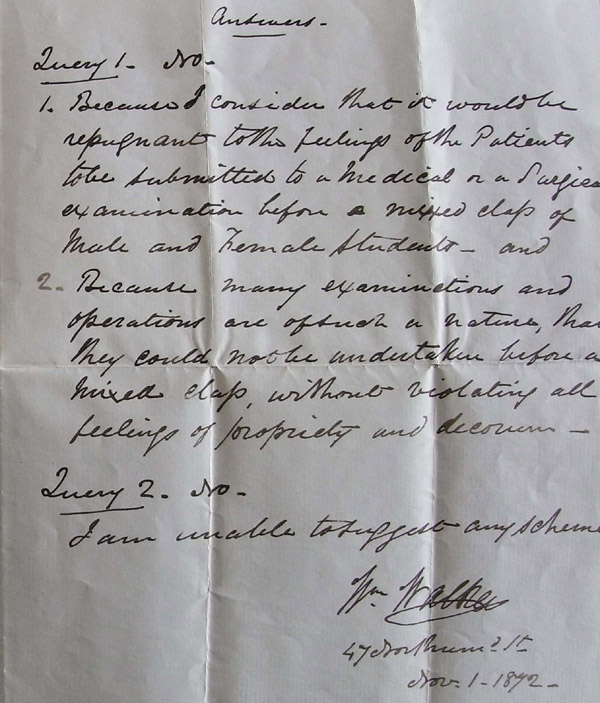 Answers -
Query 1 - No -
1. Because I consider that it would be
repugnant to the feelings of the Patients
to be submitted to a Medical or a Surgica
examination before a mixed class of
Male and Female Students - and
2. Because many examinations and
operations are of such a nature, that
they could not be undertaken before a
mixed class, without violating all
feelings of propriety and decorum -
Query 2 - No -
I am unable to suggest any scheme
Wm Walker
47 Northumd St
Nov. 1 - 1872 -